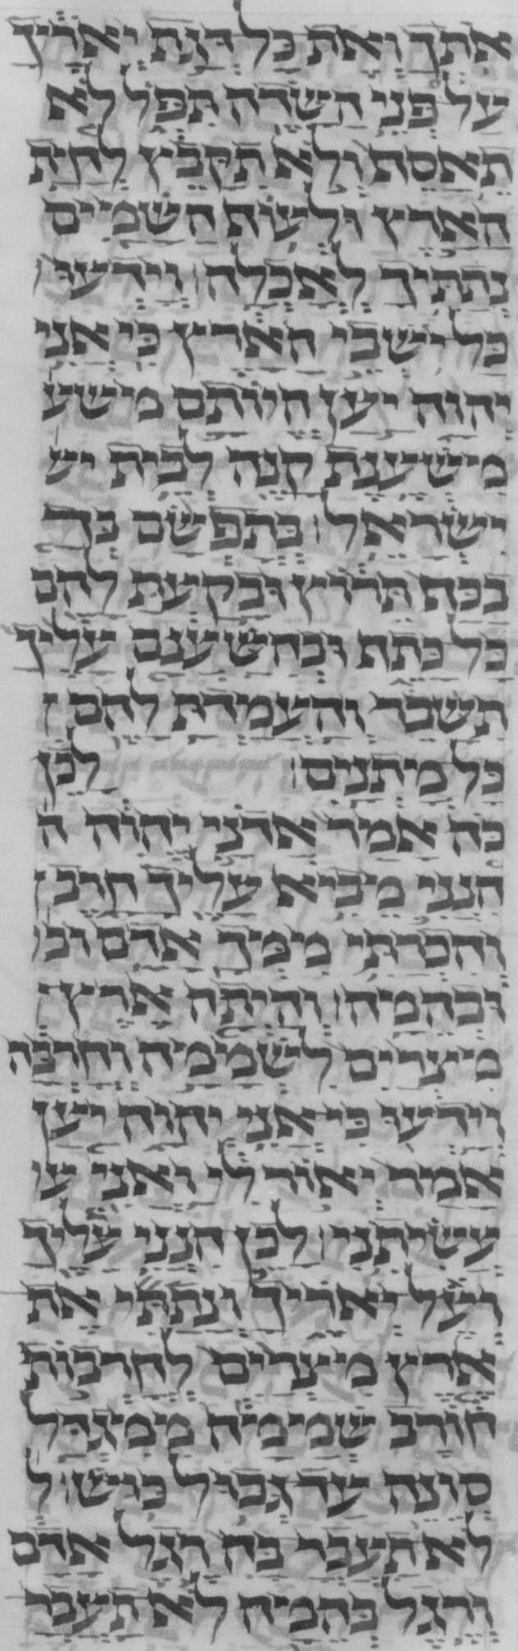 אתך ואת כל דגת יאריך
על פני השדה תפל לא
תאסף ולא תקבץ לחית
הארץ ולעוף השמים
נתתיך לאכלה׃ וידעו
כל ישבי הארץ כי אני
יהוה יען היותם משע
משענת קנה לבית יש
ישראל׃ בתפשם בך
בכף תרוץ ובקעת להם
כל כתף ובהשענם עליך
תשבר והעמדת להם
כל מתנים׃ לכן
כה אמר אדני יהוה ה
הנני מביא עליך חרב
והכרתי ממך אדם ובו
ובהמה׃ והיתה ארץ
מצרים לשממה וחרבה
וידעו כי אני יהוה יען
אמר יאור לי ואני עו
עשיתי׃ לכן הנני אליך
ועל יאריך ונתתי את
ארץ מצרים לחרבות
חורב שממה ממגדל
סונה עד גבול כוש׃ ל
לא תעבר בה רגל אדם
ורגל בהמה לא תעבר